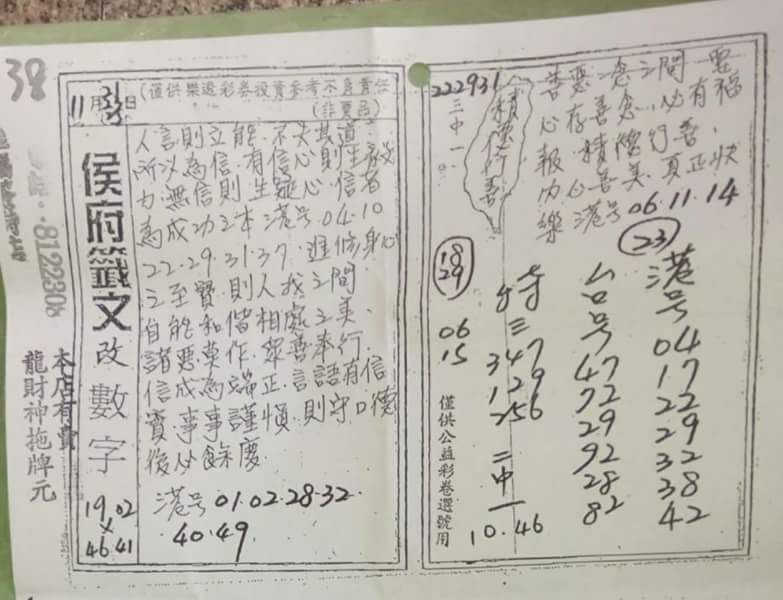 38
11月
日
(僅供樂透彩券投資參考不負責任
侯府籤文
改數字
19 02
46 41
本店有賣
龍財神拖牌元
人言則立能.不失其道.
所以為信.有信心則生毅
力.無信則生疑心.信者
為成功之本.港号.04.10
22.29.31.37.進修身心
之至寶.則人我之間
自能和偕相處之美.
諸惡莫作.眾善奉行.
信成為端正.言語有信
實.事事謹慎.則守口德
後必餘慶.
港号01.02.28.32.
40.49.
222931
三中一
積德行善
善惡一念之間一
心存善念,必有福
報.積陰行善.
內心善美.真正快
樂.港号06.11.14
(23)
港号
04
17
22
29
32
38
42
台号
47
72
29
92
28
82
特三
347
129
256
二中一
10.46
18
29
06
15
僅供公益彩卷選號用